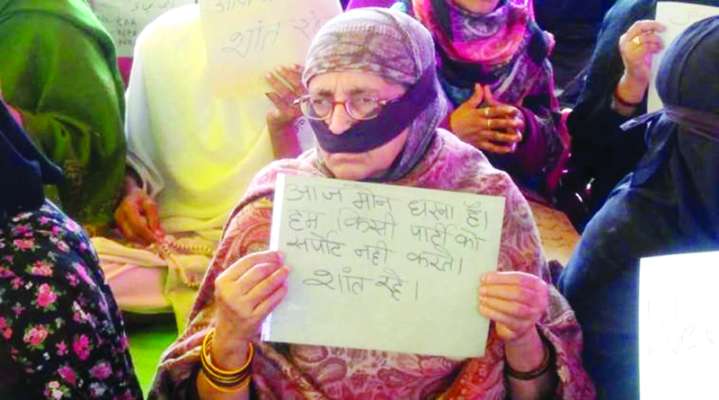 शांत रहे
आज मौन धरना है।
हम किसी पार्टी को
सर्पोट नही करते।
शांत रहे।